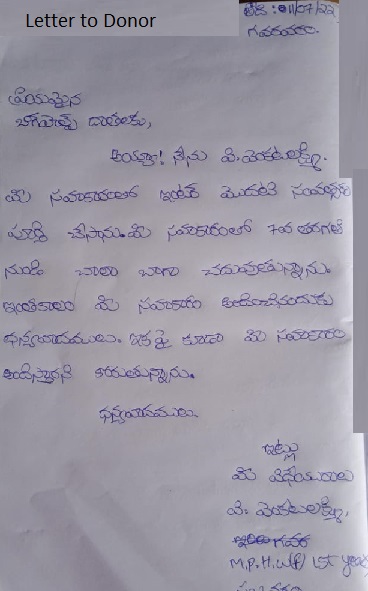 Letter to Donor
తేది: 11/07/22
గవరవరం.
ప్రియమైన
దాతలకు,
అయ్యా! నేను వి. వెంకటలక్ష్మి.
మీ సహకారంతో ఇంటర్ మొదటి సంవత్సరం
పూర్తి చేసాను. మీ సహకారంతో 7వ తరగతి
నుండి చాలా బాగా చదువుతున్నాను.
ఇంతకాలం మీ సహకారం అందించినందుకు
ధన్యవాదములు. ఇక పై కూడా మీ సహకారం
అందిస్తారని కోరుతున్నాను.
ధన్యవాదములు.
ఇట్లు
మీ విధేయురాలు
వి. వెంకటలక్ష్మి,
M.P.H.W(F) 1st year